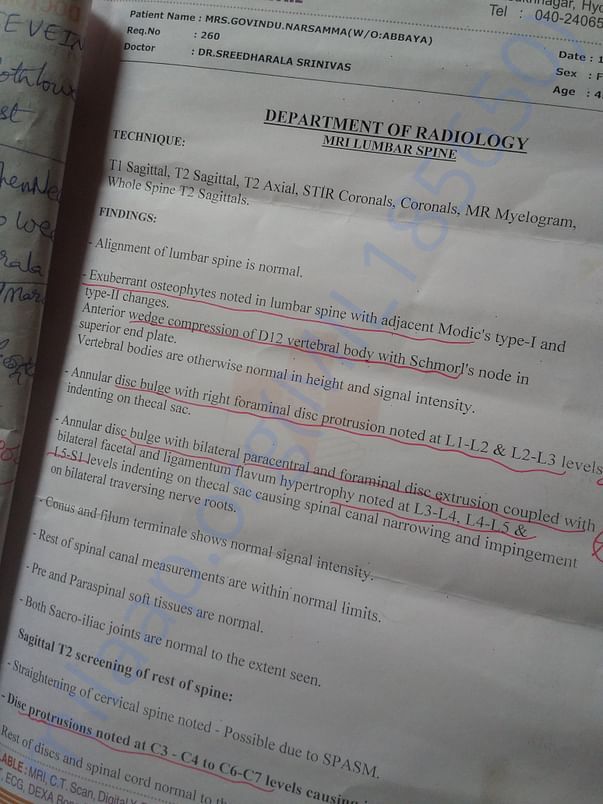 Tel : 040-24065
Patient Name : MRS.GOVINDU.NARSAMMA(W/O:ABBAYA)
Req.No : 260
Doctor : DR.SREEDHARALA SRINIVAS
Date : 1
Sex : F
Age : 4
DEPARTMENT OF RADIOLOGY
MRI LUMBAR SPINE
TECHNIQUE:
T1 Sagittal, T2 Sagittal, T2 Axial, STIR Coronals, Coronals, MR Myelogram,
Whole Spine T2 Sagittals.
FINDINGS:
- Alignment of lumbar spine is normal.
- Exuberrant osteophytes noted in lumbar spine with adjacent Modic's type-I and
type-II changes.
Anterior wedge compression of D12 vertebral body with Schmorl's node in
superior end plate.
Vertebral bodies are otherwise normal in height and signal intensity.
- Annular disc bulge with right foraminal disc protrusion noted at L1-L2 & L2-L3 levels
indenting on thecal sac.
- Annular disc bulge with bilateral paracentral and foraminal disc extrusion coupled with
bilateral facetal and ligamentum flavum hypertrophy noted at L3-L4, L4-L5 &
L5-S1 levels indenting on thecal sac causing spinal canal narrowing and impingement
on bilateral traversing nerve roots.
- Conus and filum terminale shows normal signal intensity.
- Rest of spinal canal measurements are within normal limits.
- Pre and Paraspinal soft tissues are normal.
- Both Sacro-iliac joints are normal to the extent seen.
Sagittal T2 screening of rest of spine:
- Straightening of cervical spine noted - Possible due to SPASM.
- Disc protrusions noted at C3 - C4 to C6-C7 levels causing
Rest of discs and spinal cord normal to
LABLE : MRI, C.T. Scan, Digital
ECG, DEXA